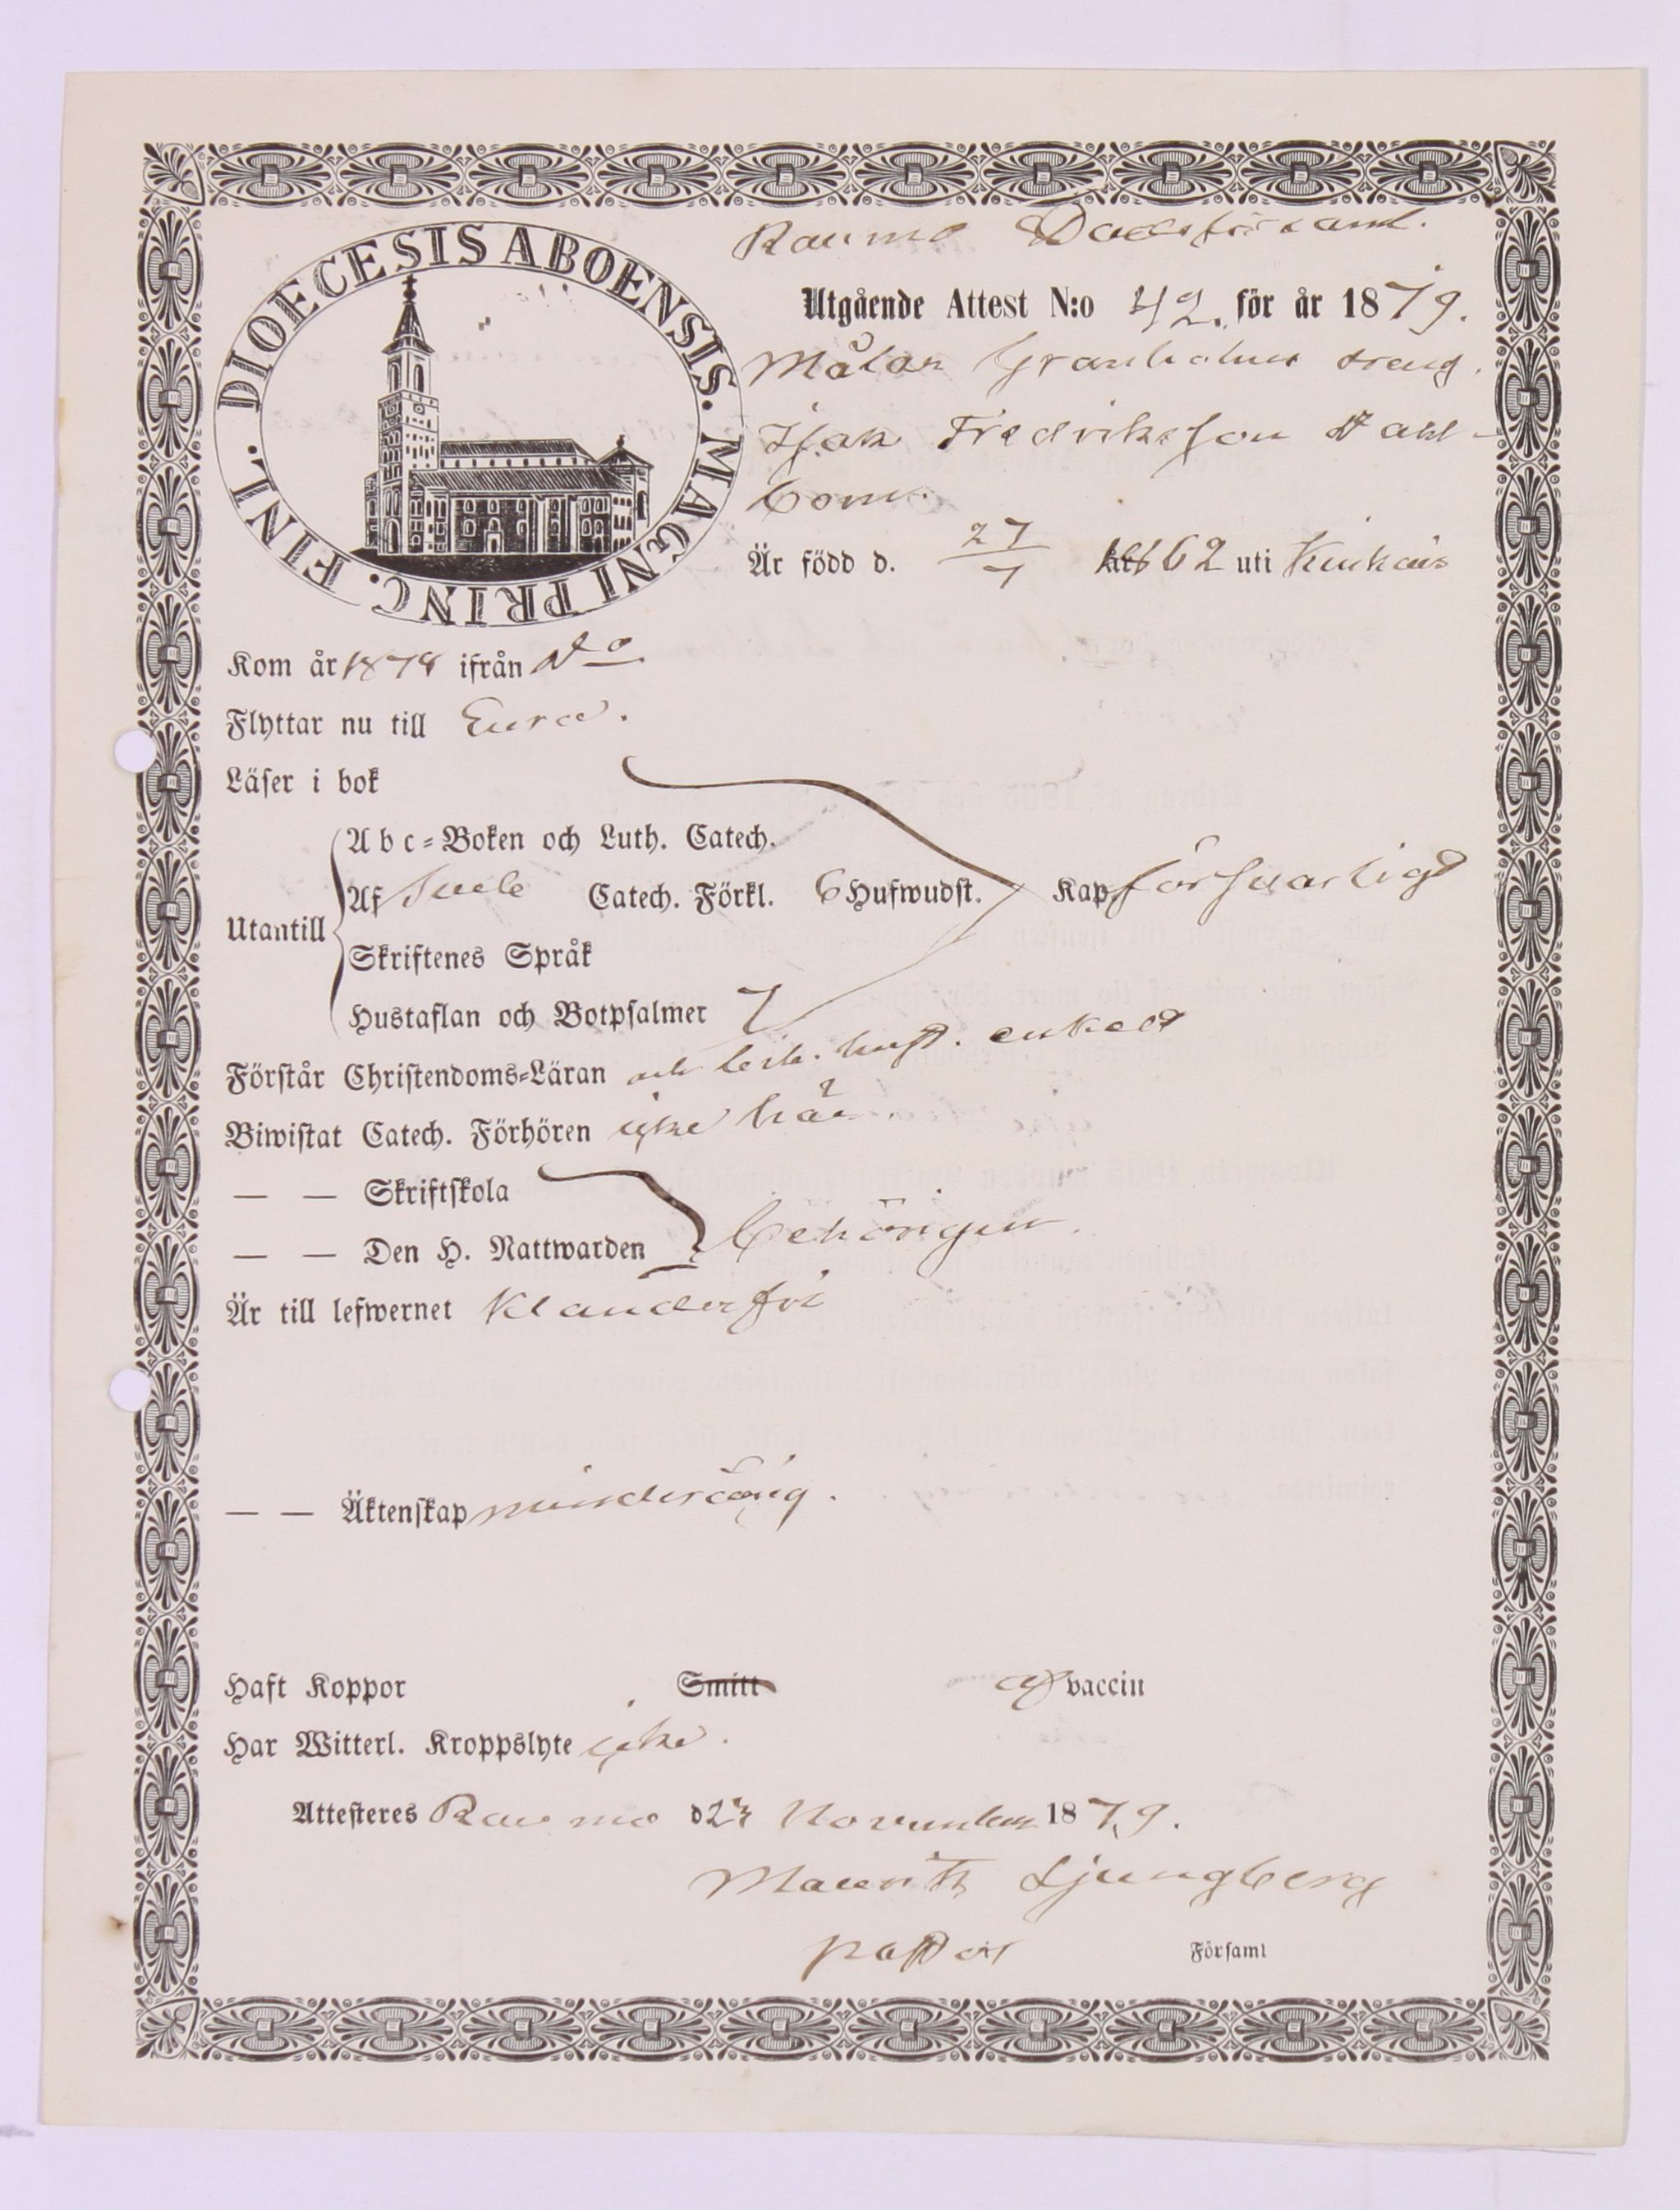 DIOECESIS ABOENSIS. MAGNI PRINC. FINL.
Raumo Stadsförsaml.
Utgående Attest N:o 42. för år 1879.
Målar Granholms dreng.
Isak Fredriksson Dahl-
bom.
Är född d. 27/7 1862 uti Kiukais
Kom år 1878 ifrån do
Flyttar nu till Eura.
Läser i bok
Utantill
Abc-Boken och Luth. Catech.
Af Catech. Förkl. 6 Hufwudst. Kap försvarligt
Skriftenes Språk
Hustaflan och Botpsalmer 7
Förstår Christendoms-Läran enkelt
Biwistat Catech. Förhören icke här
— — Skriftskola
— — Den H. Nattwarden behörigen.
Är till lefwernet klanderfri
— — Äktenskap minderårig.
Haft Koppor Smitt af vaccin
Har Witterl. Kroppslyte icke.
Attesteres Raumo d November 1879.
Mauritz Ljungberg
pastor Församl